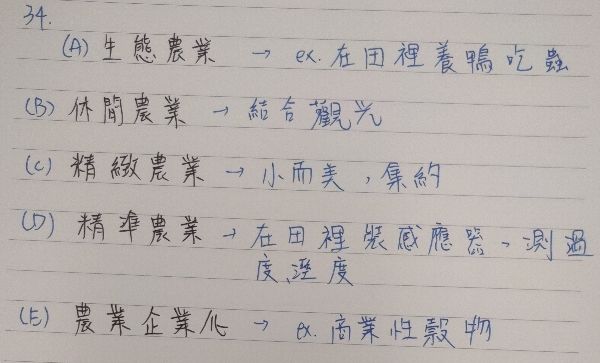 34.
(A) 生態農業 → ex. 在田裡養鴨吃蟲
(B) 休閒農業 → 結合觀光
(C) 精緻農業 → 小而美，集約
(D) 精準農業 → 在田裡裝感應器、測溫
度、溼度
(E) 農業企業化 → ex. 商業性穀物